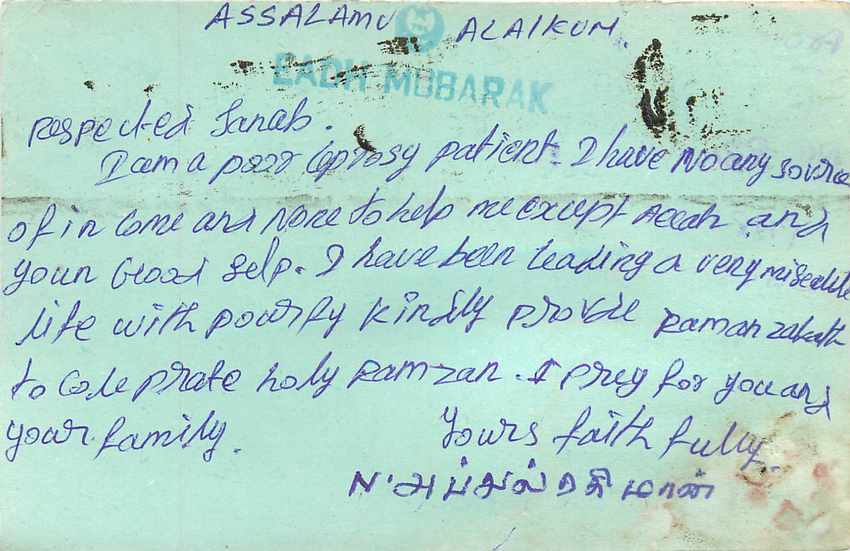 ASSALAMU ALAIKUM.
EADH MUBARAK
respected Janab.
I am a poor leprosy patient. I have No any sovrce
of in come and None to help me except Allah and
your Good self. I have been leading a very miserable
life with pourty kindly provde ramanzakath
to cele prate holy Ramzan. I prey for you and
your family.
Yours faithfully.
N. அப்துல் ரகிமான்